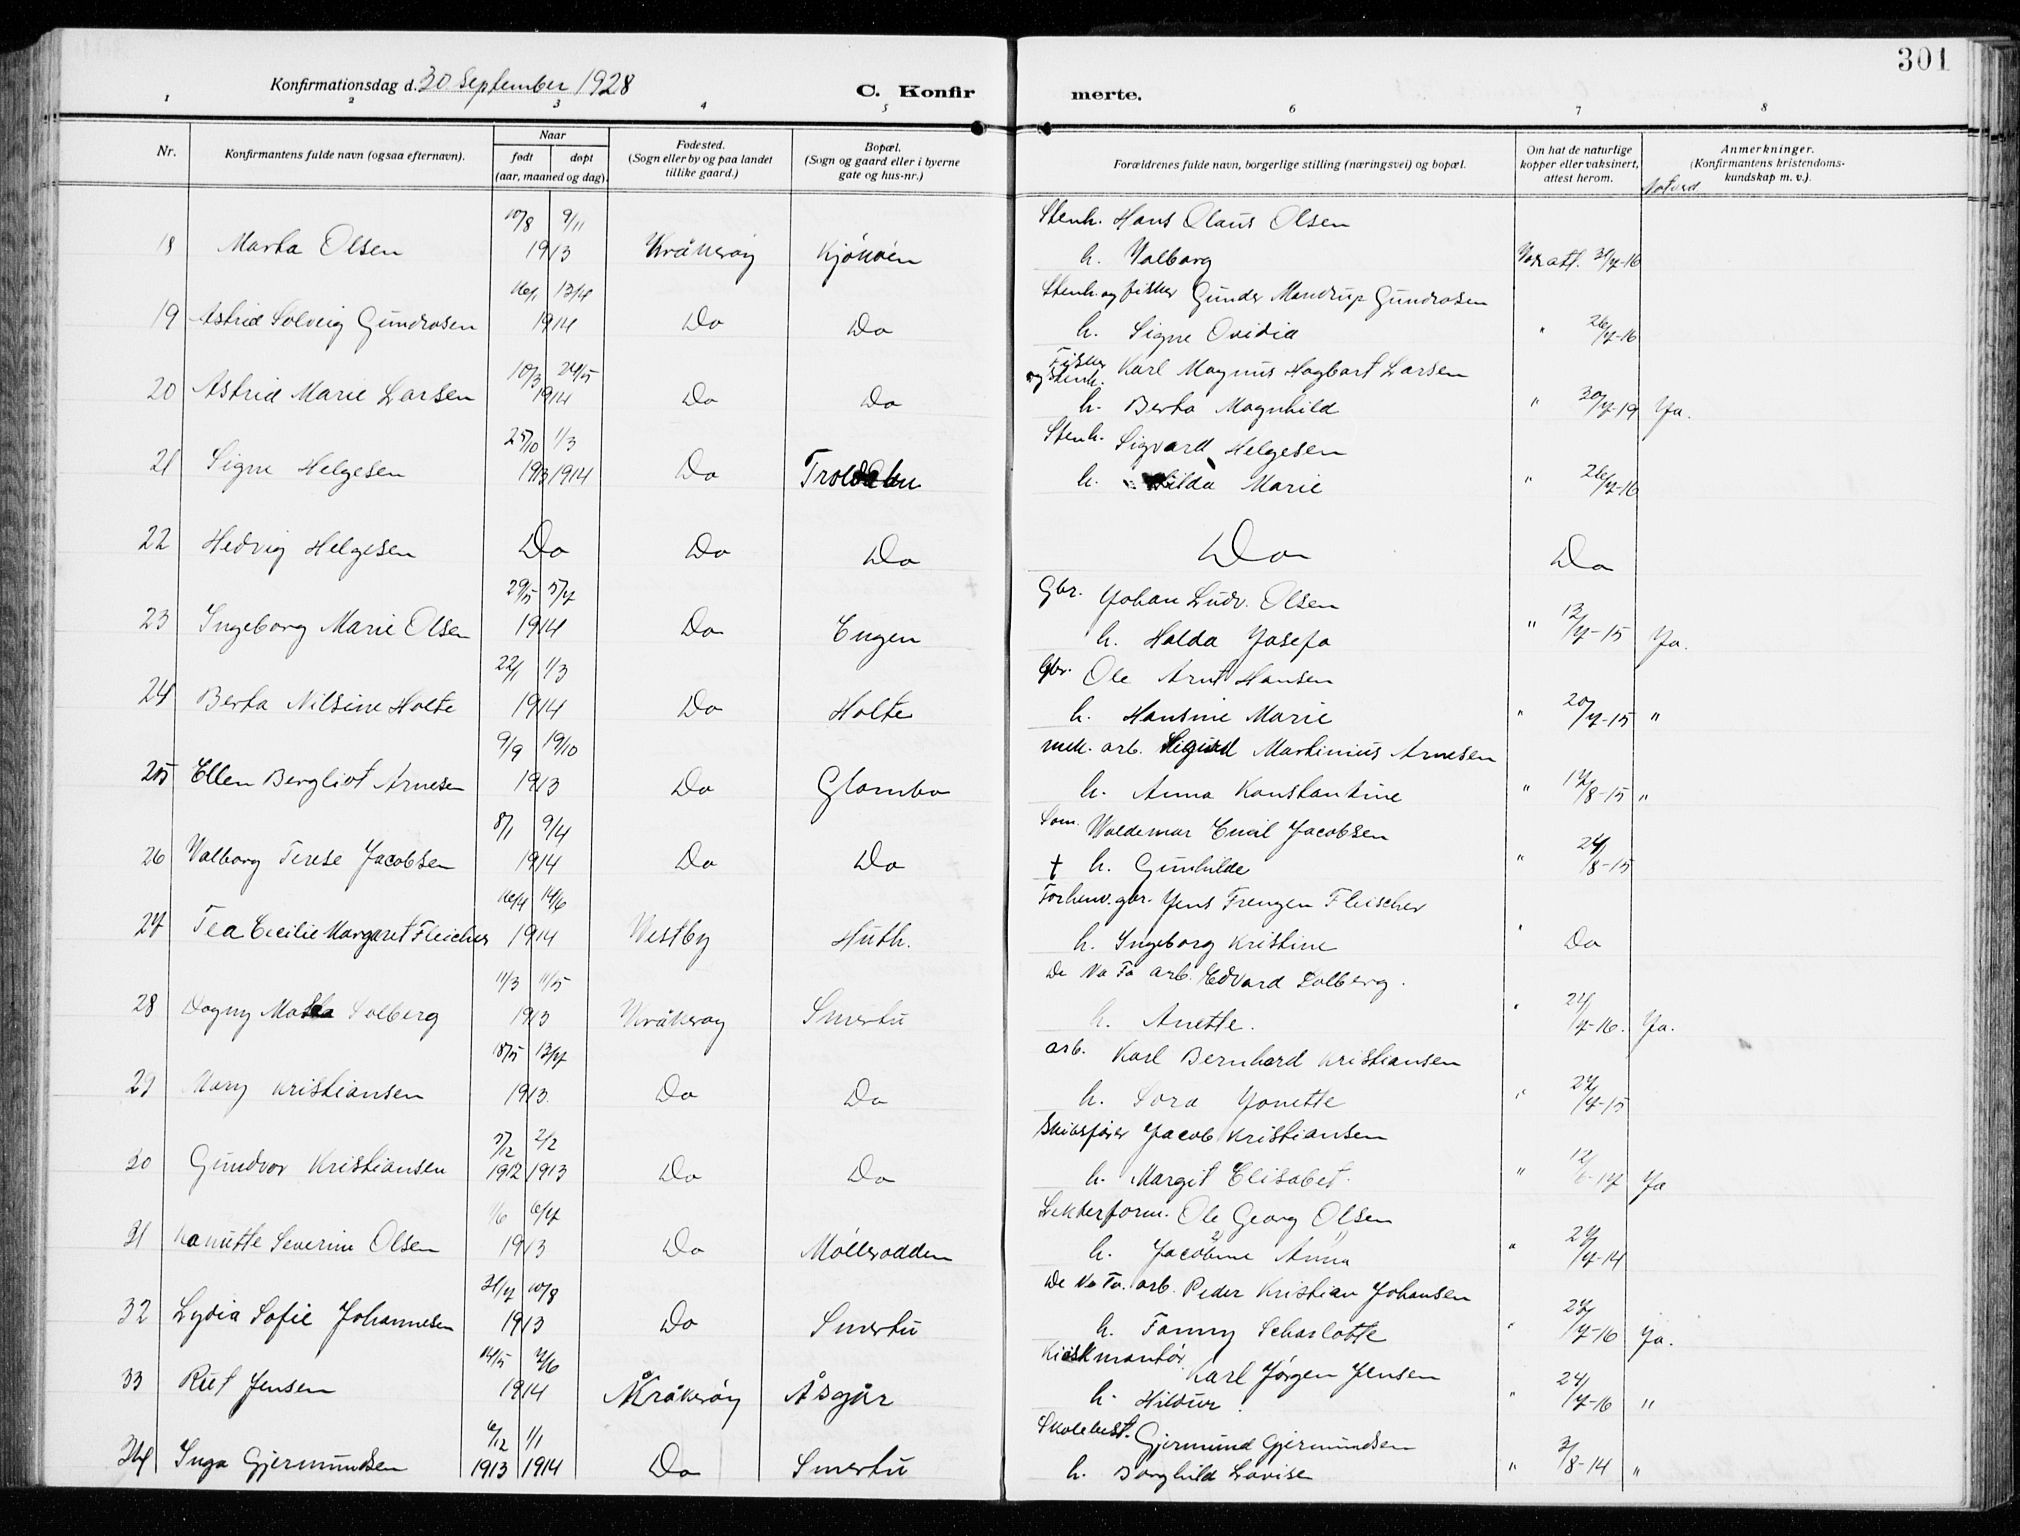 301
Konfirmationsdag d. 30 September 1928
C. Konfir merte.
1 2 3 4 5 6 7 8
Nr. Konfirmantens fulde navn (ogsaa efternavn). Naar født døpt (aar, maaned og dag). Fødested. (Sogn eller by og paa landet tillike gaard.) Bopæl. (Sogn og gaard eller i byerne gate og hus-nr.) Forældrenes fulde navn, borgerlige stilling (næringsvei) og bopæl. Om hat de naturlige kopper eller vaksinert, attest herom. Anmerkninger. (Konfirmantens kristendoms-kundskap m. v.).
10/8 9/11 Stenh. Hans Olaus Olsen
18 Marta Olsen 1913 Kråkerøy Kjøkøen h. Valborg Vak att. 31/7-16
16/1 13/4 Stenh. og fisker Gunder Mandrup Gundrosen
19 Astrid Solveig Gundrosen 1914 Do Do h. Signe Ovidia " 26/7-16
10/3 24/5 Fisker og Stenh. Karl Magnus Hagbart Larsen
20 Astrid Marie Larsen 1914 Do Do h. Berta Magnhild " 30/7-19 Ja.
25/10 1/3 Stenh. Sigvard Helgesen
21 Signe Helgesen 1913 1914 Do h. Hilda Marie " 26/7-16
22 Hedvig Helgesen Do Do Do Do Do
29/5 5/7 Gbr. Johan Ludv. Olsen
23 Ingeborg Marie Olsen 1914 Do Engen h. Halda Josefa " 12/7-15 Ja.
22/1 1/3 Gbr. Ole Arnt Hansen
24 Berta Nilsine Holte 1914 Do Holte h. Hansine Marie " 20/7-15 "
9/9 19/10 mek. arb. Sigurd Martinius Arnesen
25 Ellen Bergliot Arnesen 1913 Do Glombo h. Anna Konstantine " 17/8-15 "
8/1 9/4 Søm. Waldemar Emil Jacobsen
26 Valborg Terese Jacobsen 1914 Do Do † h. Gunhilde " 24/8-15
16/4 14/6 Forhenv. gbr. Jens Frengen Fleischer
27 Tea Cecilie Margaret Fleicher 1914 Vestby Huth. h. Ingeborg Kristine " Do
11/3 11/5 De No Fa arb. Edvard Solberg.
28 Dagny Solberg 1913 Kråkerøy Smertu h. Anette. " 27/7-16. Ja.
18/5 13/7 arb. Karl Bernhard Kristiansen
29 Mary Kristiansen 1913. Do Do h. Lora Jonette " 27/7-15
5/12 2/2 Skibsfører Jacob Kristiansen
30 Gundvor Kristiansen 1912 1913 Do Do h. Margit Elisabet. " Ja
1/6 6/7 Lekterform. Ole Georg Olsen
31 Kanutte Severine Olsen 1913 Do Møllerodden h. Jacobine Anna " 27/7-14
31/7 10/8 De No Fa. arb. Peder Kristian Johansen
32 Lydia Sofie Johannesen 1913 Do Smertu h. Fanny Scharlotte " 27/7-16 Ja.
14/5 7/6 Karl Jørgen Jensen
33 Rut Jensen 1914 Kråkerøy Åsgår h. Hildur. " 24/7-16 "
6/12 1/1 Skolebest. Gjermund Gjermundsen
34 Inga Gjermundsen 1913 1914 Do Smertu h. Borghild Lovise " 3/8-14 "